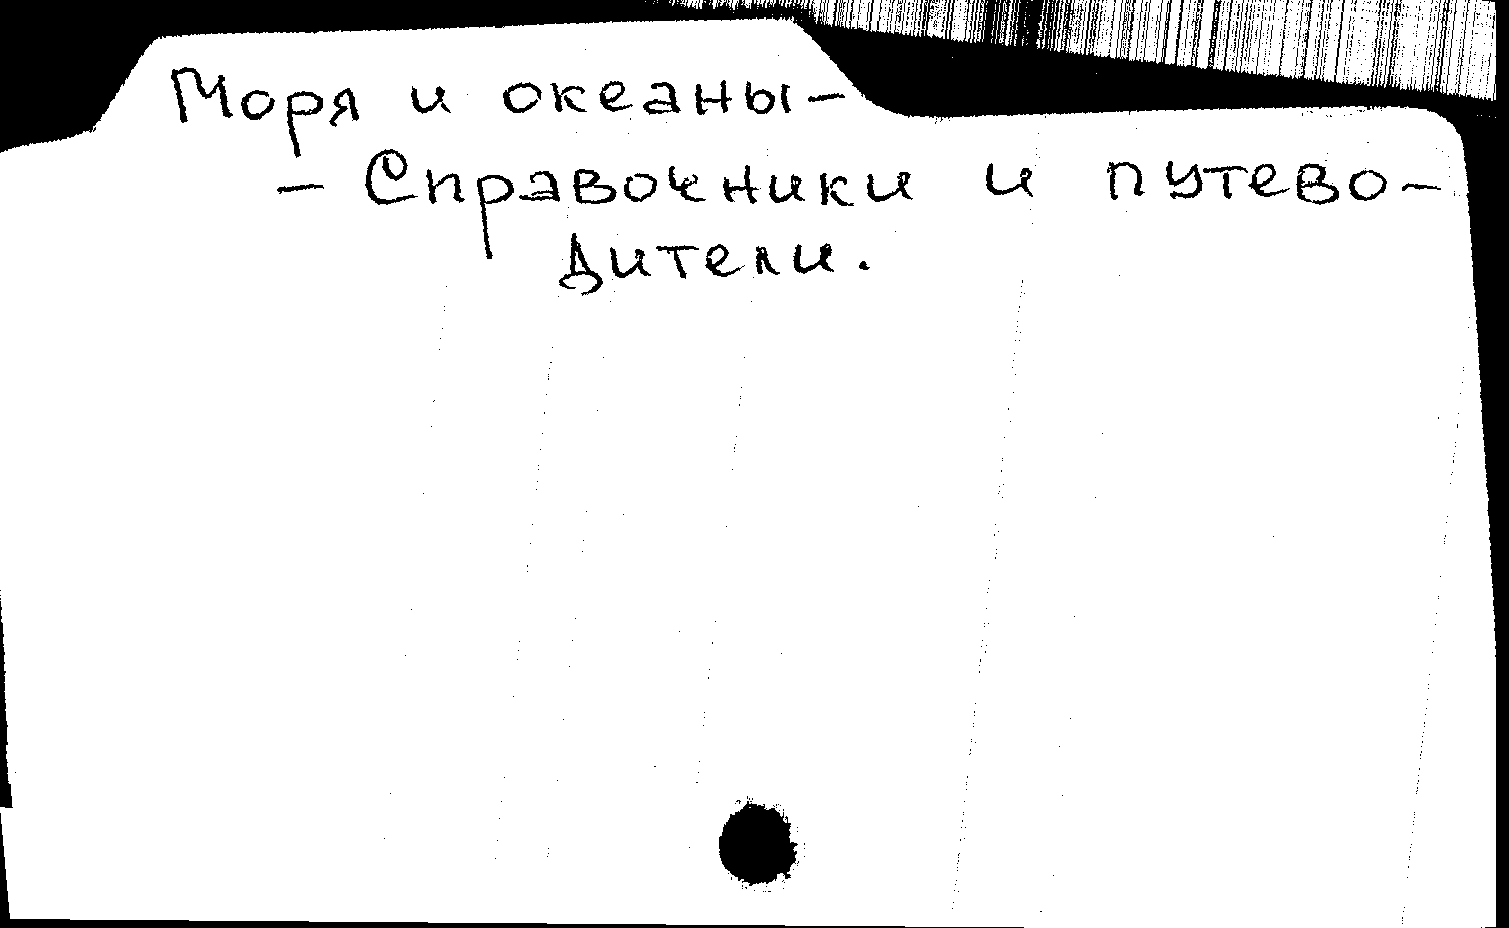 Моря и океаны-
- Справочники и путево-
дители.